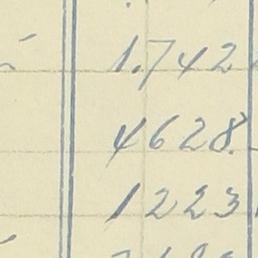 1.742
4628.
1223